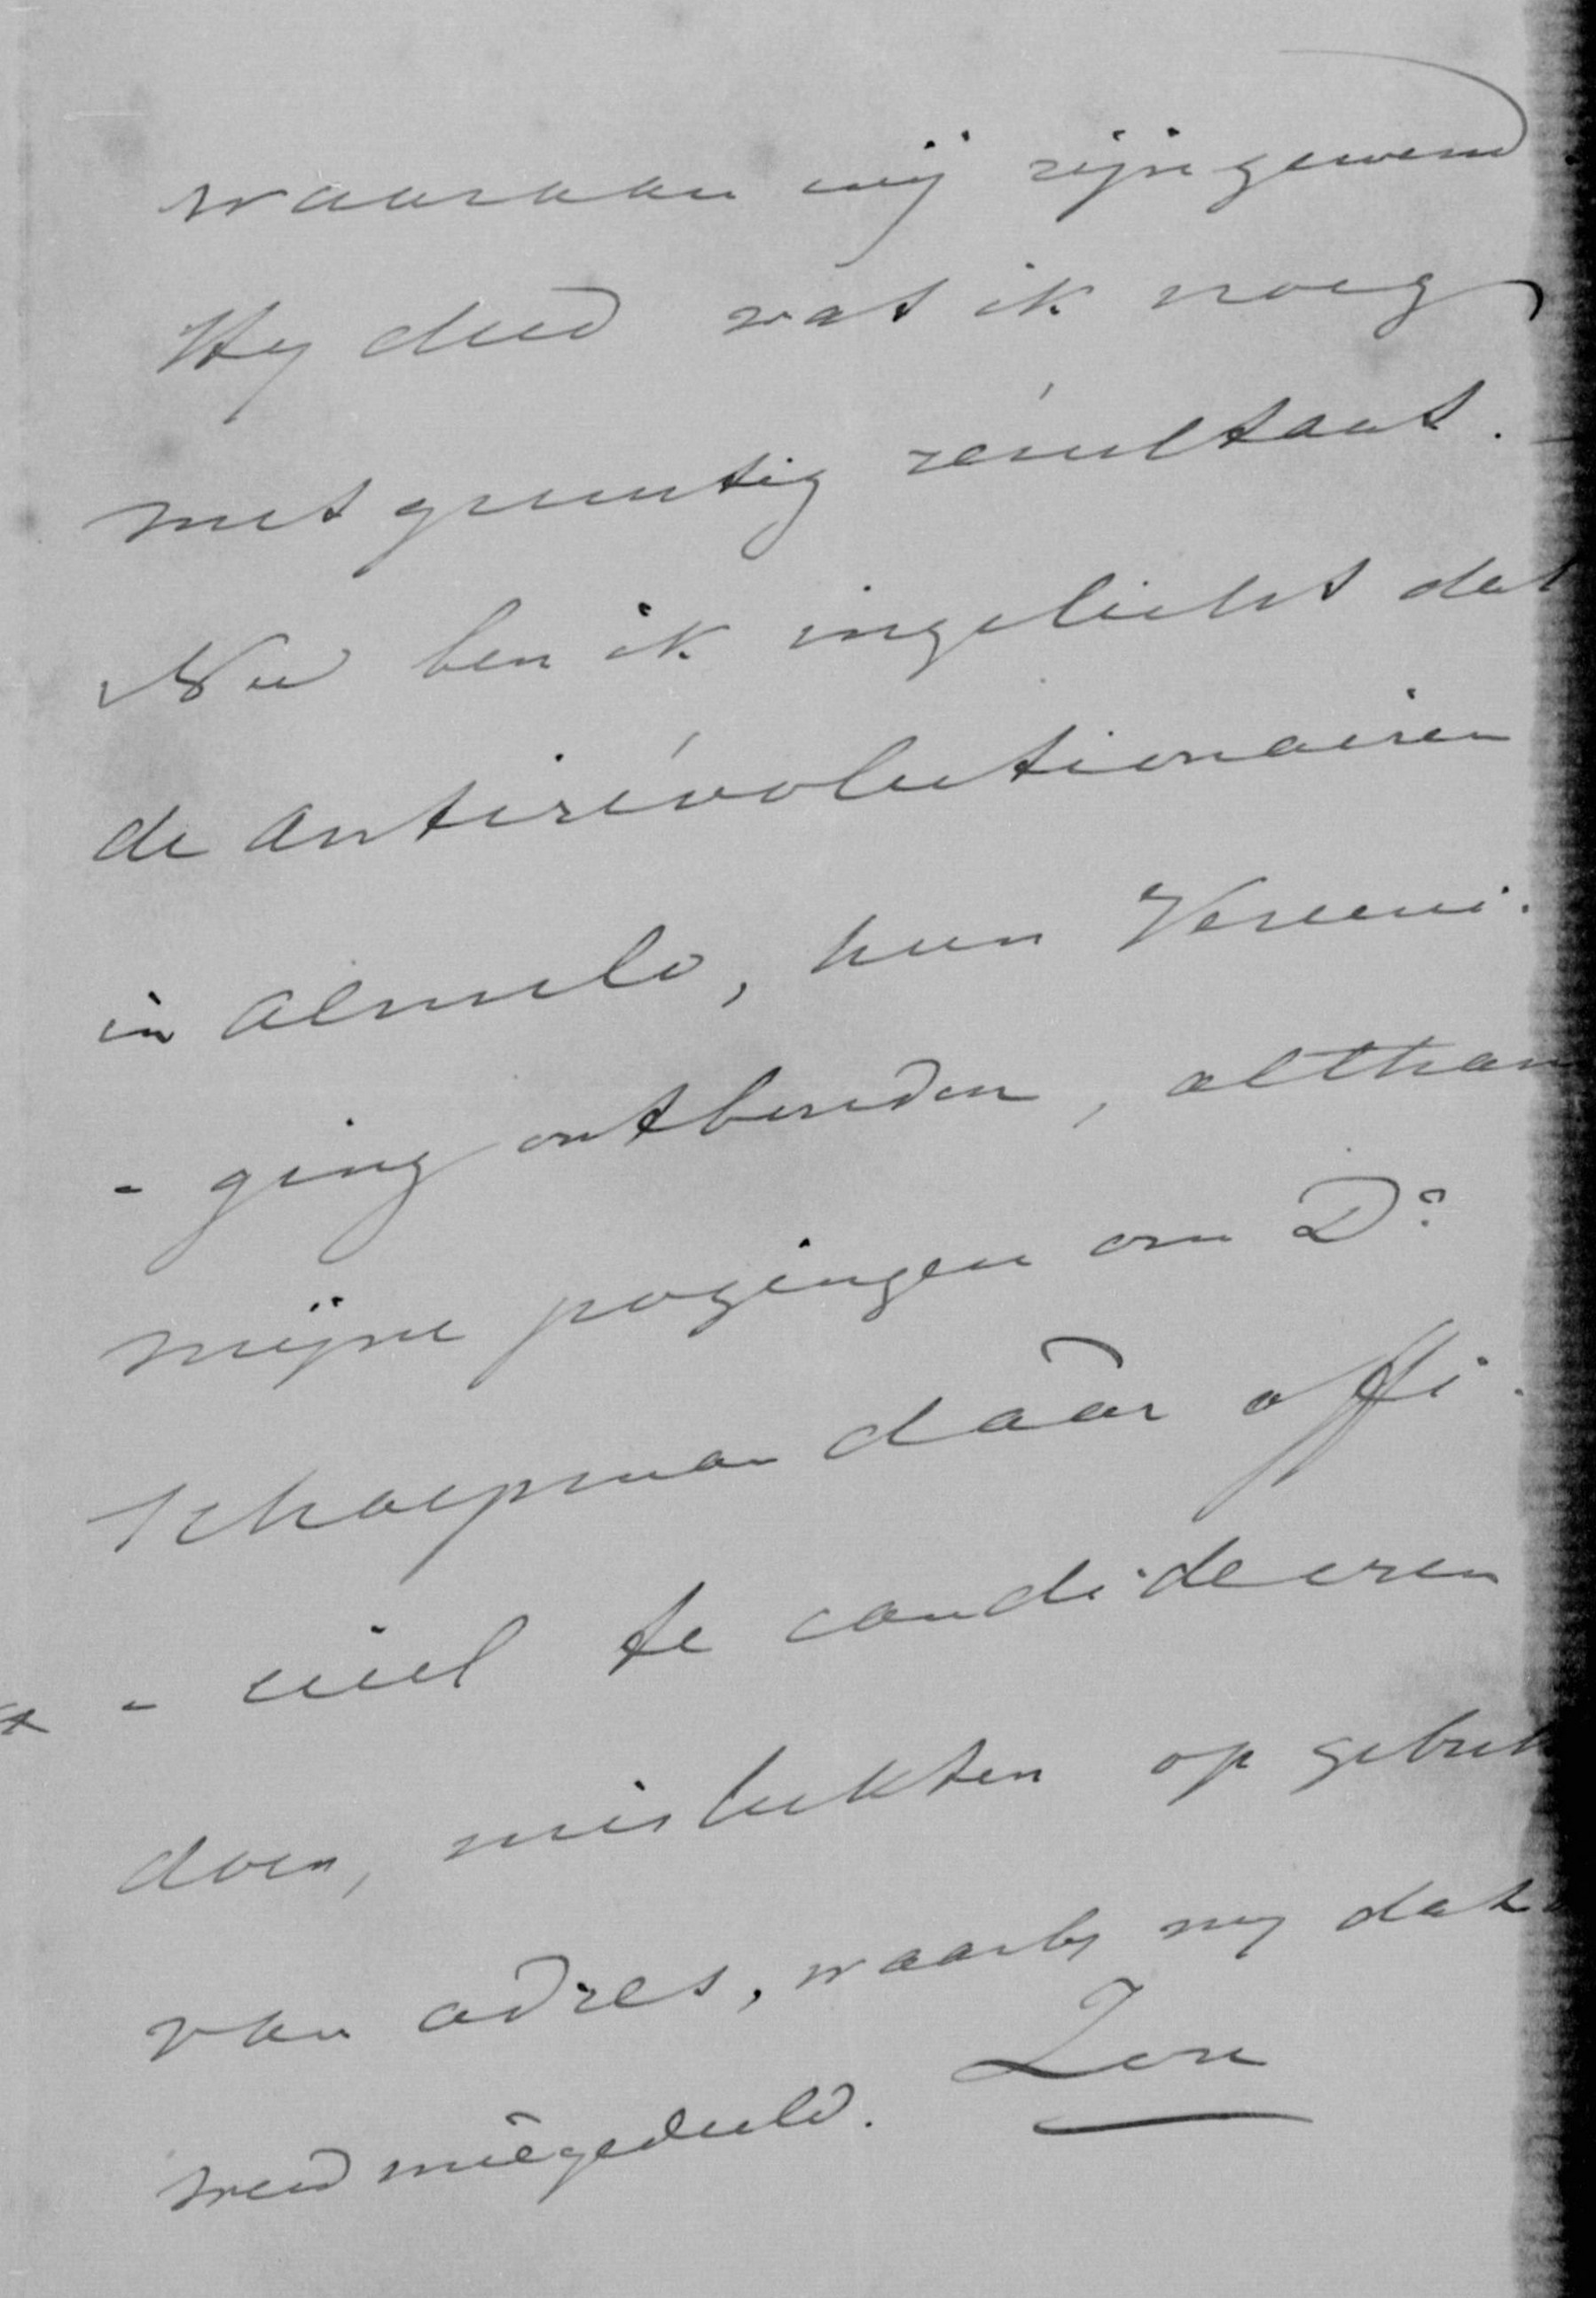 waaraan wij zijn gewend
Hy deed wat ik vroeg
met gunstig résultaat.
Nu ben ik ingelicht dat
de Antirévolutionairen
in Almelo, hun Vereeni-
- ging ontbinden, althans
mijne pogingen om Dr
Schaepman dáár offi-
- ciëel te candideeren
doen, mislukten op gebrek
van adres, waarby my dat
werd meêgedeeld.